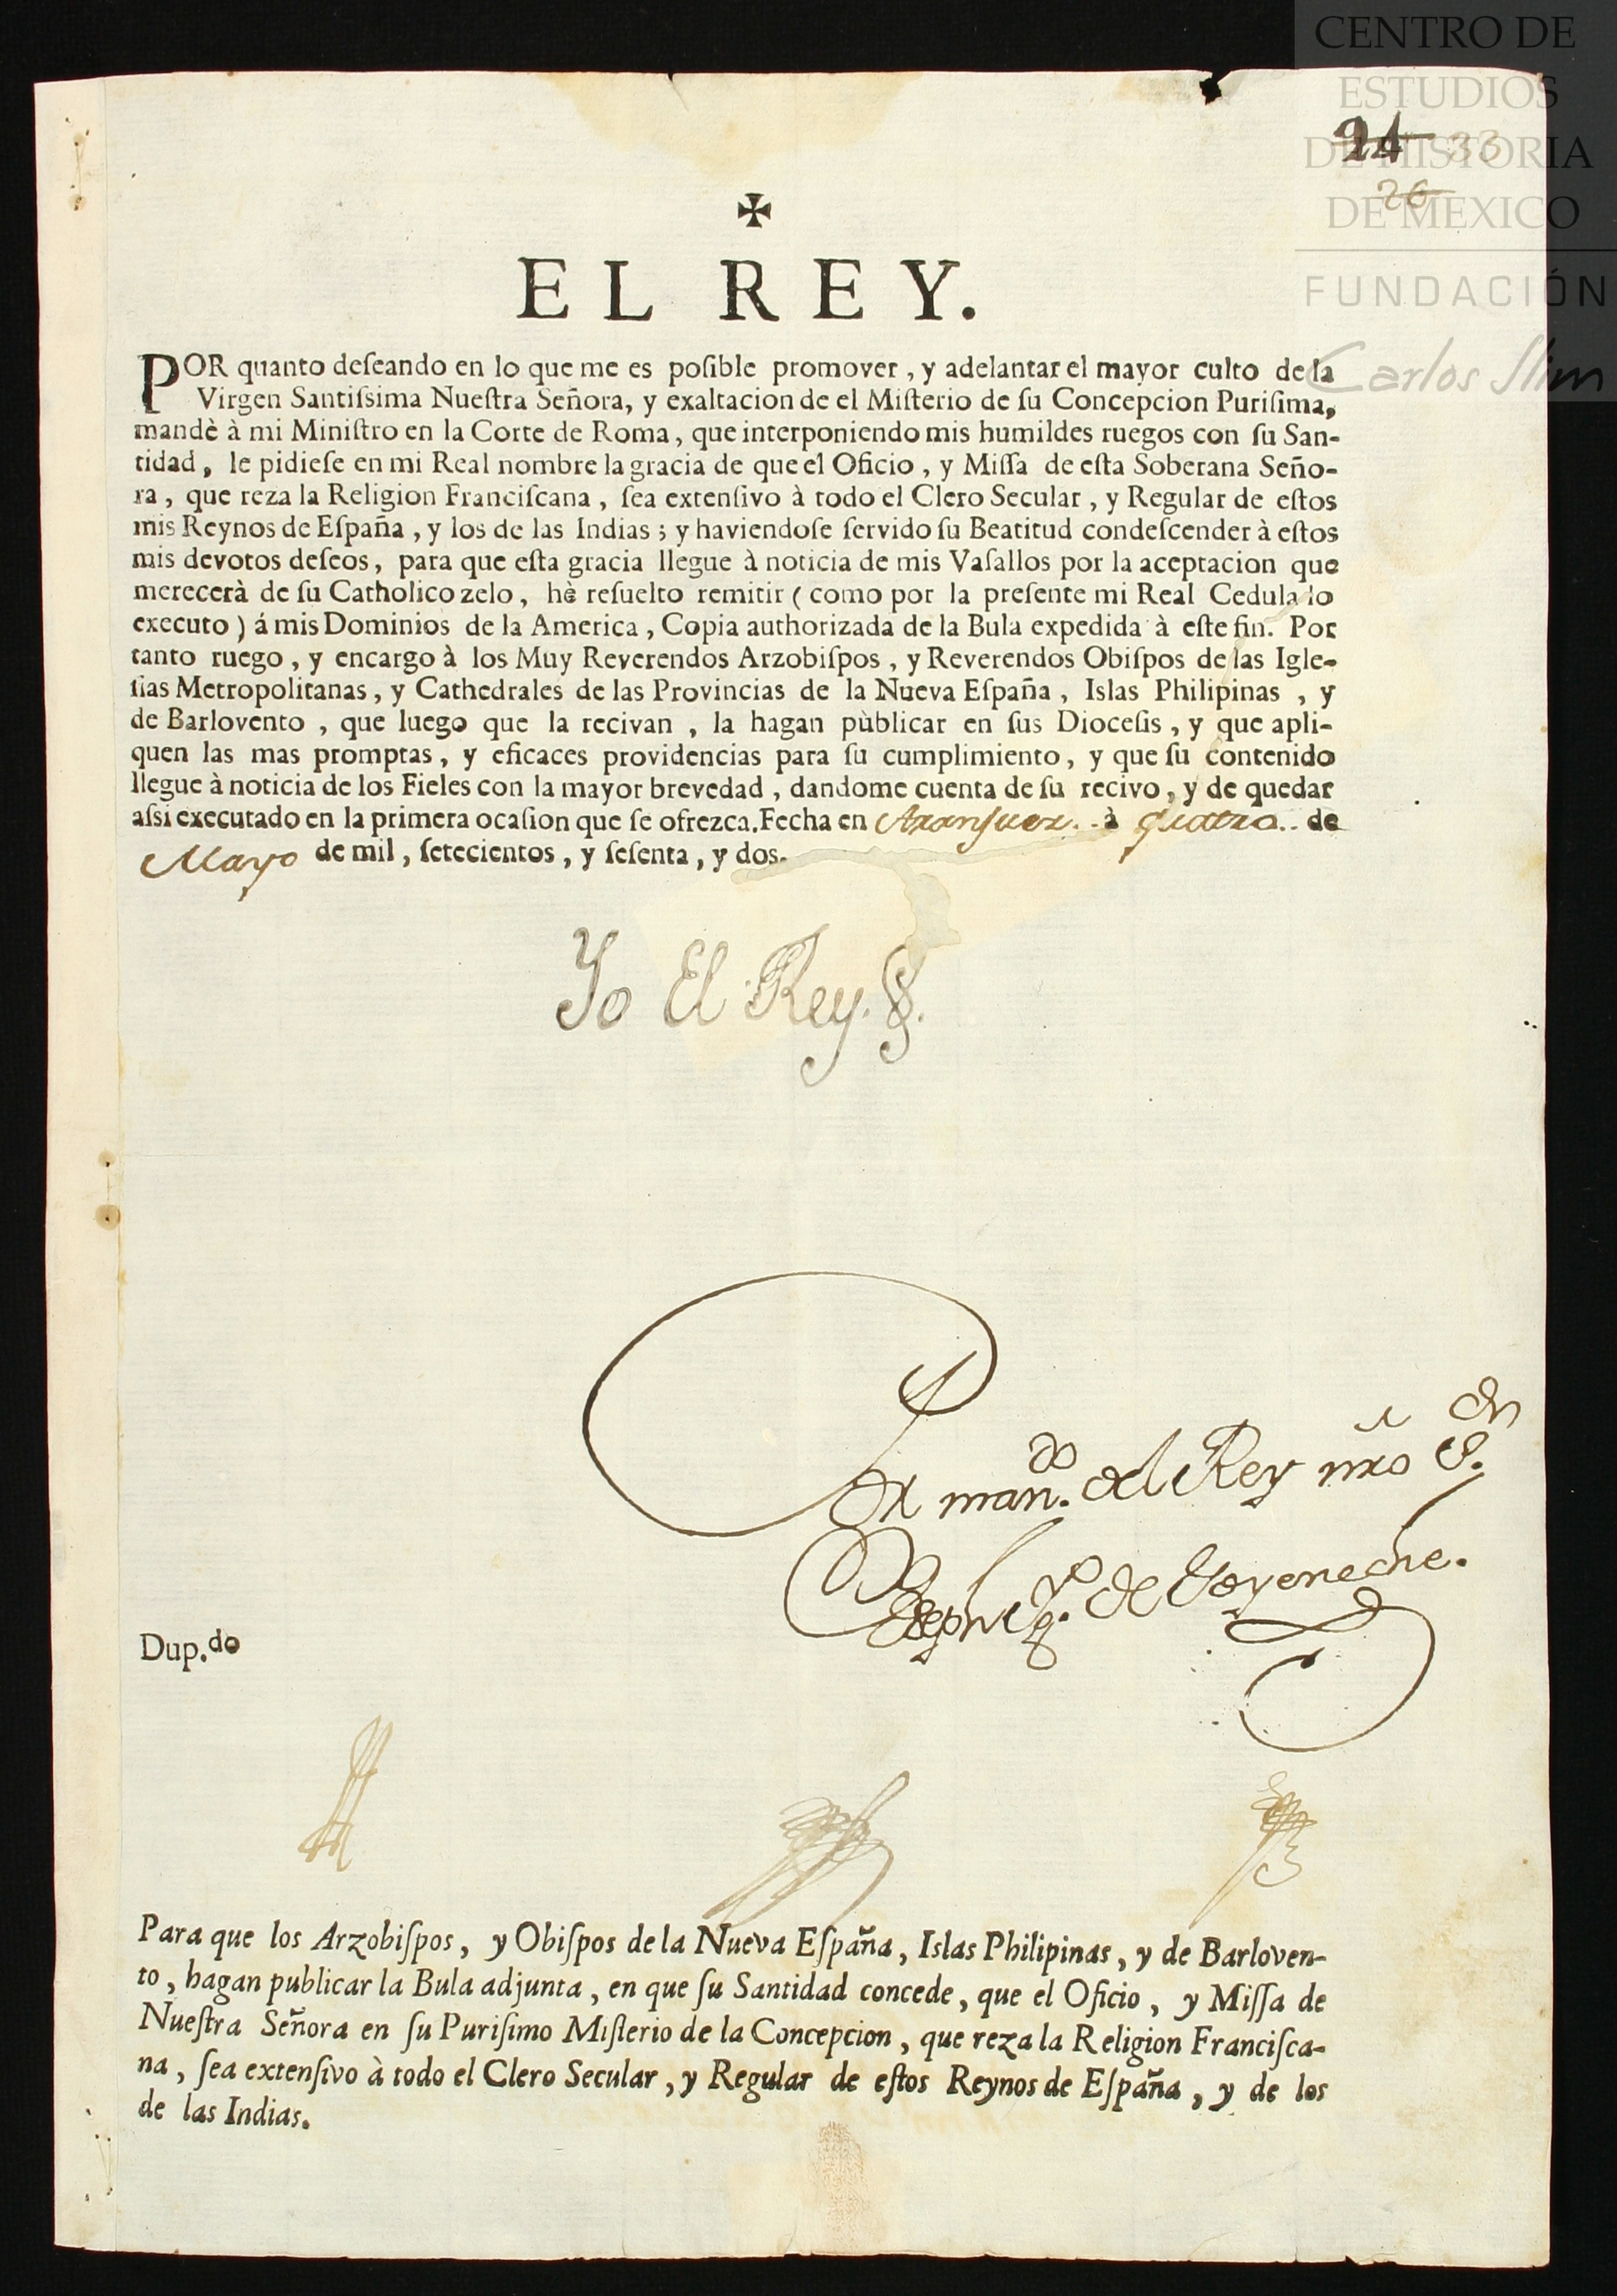 CENTRO DE
ESTUDIOS
DE HISTORIA
DE MEXICO
FUNDACIÓN
Carlos Slim
24 33
26
✠
EL REY.
POR quanto deſeando en lo que me es poſible promover, y adelantar el mayor culto de la
Virgen Santiſsima Nueſtra Señora, y exaltacion de el Miſterio de ſu Concepcion Puriſima,
mandè à mi Miniſtro en la Corte de Roma, que interponiendo mis humildes ruegos con ſu San-
tidad, le pidieſe en mi Real nombre la gracia de que el Oficio, y Miſſa de eſta Soberana Seño-
ra, que reza la Religion Franciſcana, ſea extenſivo à todo el Clero Secular, y Regular de eſtos
mis Reynos de Eſpaña, y los de las Indias; y haviendoſe ſervido ſu Beatitud condeſcender à eſtos
mis devotos deſeos, para que eſta gracia llegue à noticia de mis Vaſallos por la aceptacion que
merecerà de ſu Catholico zelo, hè reſuelto remitir (como por la preſente mi Real Cedula lo
executo) á mis Dominios de la America, Copia authorizada de la Bula expedida à eſte fin. Por
tanto ruego, y encargo à los Muy Reverendos Arzobiſpos, y Reverendos Obiſpos de las Igle-
ſias Metropolitanas, y Cathedrales de las Provincias de la Nueva Eſpaña, Islas Philipinas, y
de Barlovento, que luego que la recivan, la hagan pùblicar en ſus Dioceſis, y que apli-
quen las mas promptas, y eficaces providencias para ſu cumplimiento, y que ſu contenido
llegue à noticia de los Fieles con la mayor brevedad, dandome cuenta de ſu recivo, y de quedar
aſsi executado en la primera ocaſion que ſe ofrezca. Fecha en Aranjuez.. à quatro.. de
Mayo de mil, ſetecientos, y ſeſenta, y dos.
Yo El Rey.
Por man.do del Rey nro S.or
Joseph Ig.o de Goyeneche.
Dup.do
Para que los Arzobiſpos, y Obiſpos de la Nueva Eſpaña, Islas Philipinas, y de Barloven-
to, hagan publicar la Bula adjunta, en que ſu Santidad concede, que el Oficio, y Miſſa de
Nueſtra Señora en ſu Puriſimo Miſterio de la Concepcion, que reza la Religion Franciſca-
na, ſea extenſivo à todo el Clero Secular, y Regular de eſtos Reynos de Eſpaña, y de los
de las Indias.